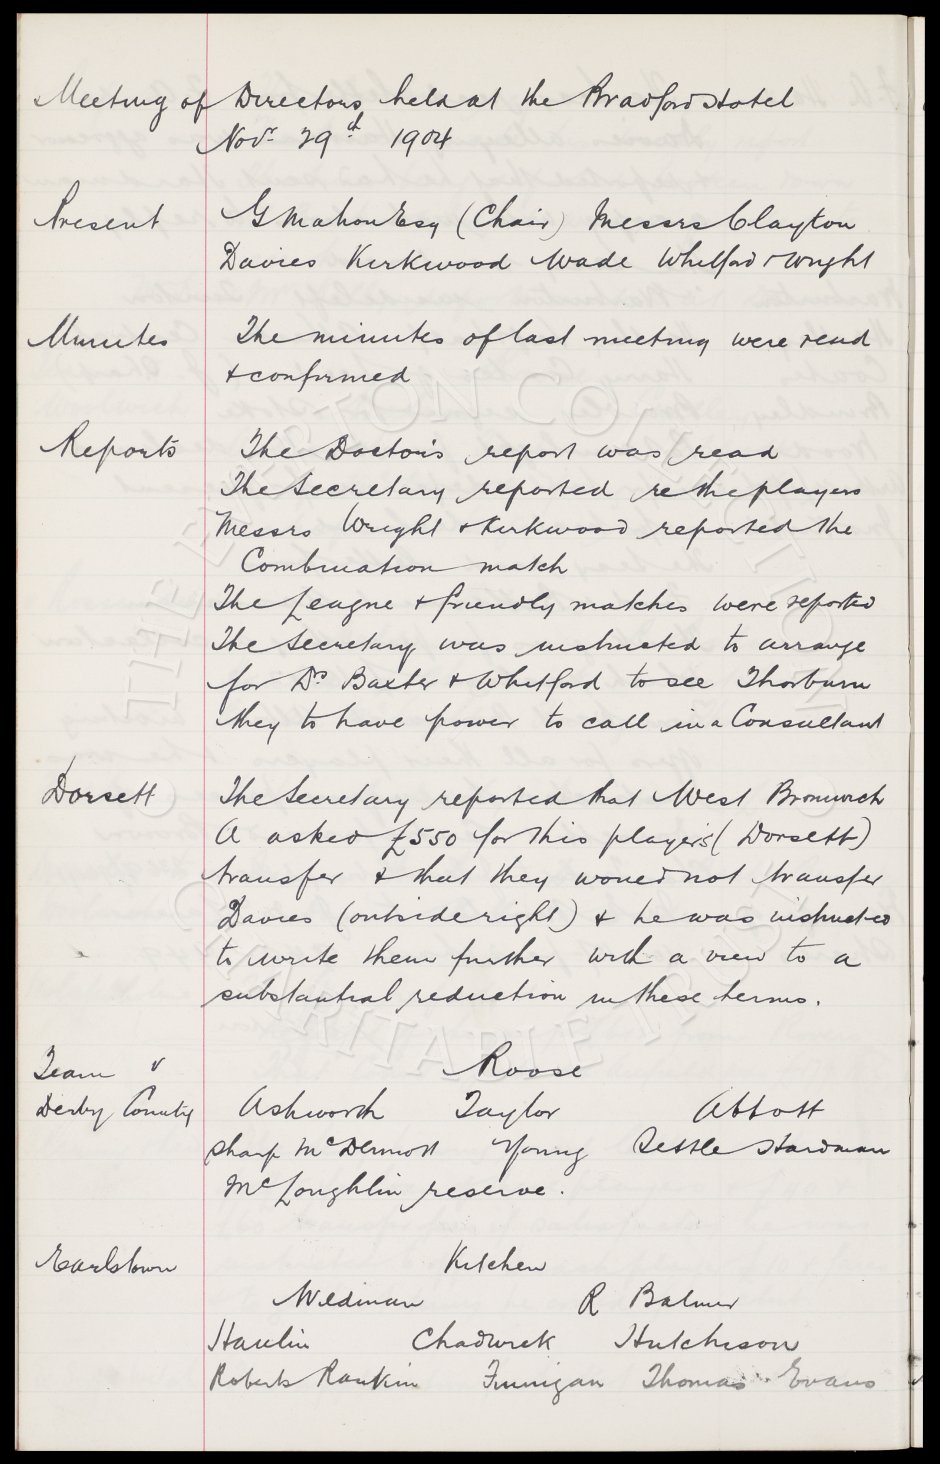 Meeting of Directors held at the Bradford Hotel
Novr. 29th 1904
Present G Mahon Esq (Chair) Messrs Clayton
Davies Kirkwood Wade Whitford & Wright
Minutes The minutes of last meeting were read
& confirmed
Reports The Doctor's report was read
The Secretary reported re the players
Messrs Wright & Kirkwood reported the
Combination match
The League & friendly matches were reported
The Secretary was instructed to arrange
for Drs Baxter & Whitford to see Thorburn
they to have power to call in a Consultant
Dorsett The Secretary reported that West Bromwich
A asked £550 for this player's (Dorsett)
transfer & that they would not transfer
Davies (outside right) & he was instructed
to write them further with a view to a
substantial reduction in these terms.
Team v Roose
Derby County Ashworth Taylor Abbott
Sharp McDermott Young Settle Hardman
McLoughlin reserve.
Earlstown Kitchen
Wildman R Balmer
Haulin Chadwick Hutchison
Roberts Rankin Finnigan Thomas Evans